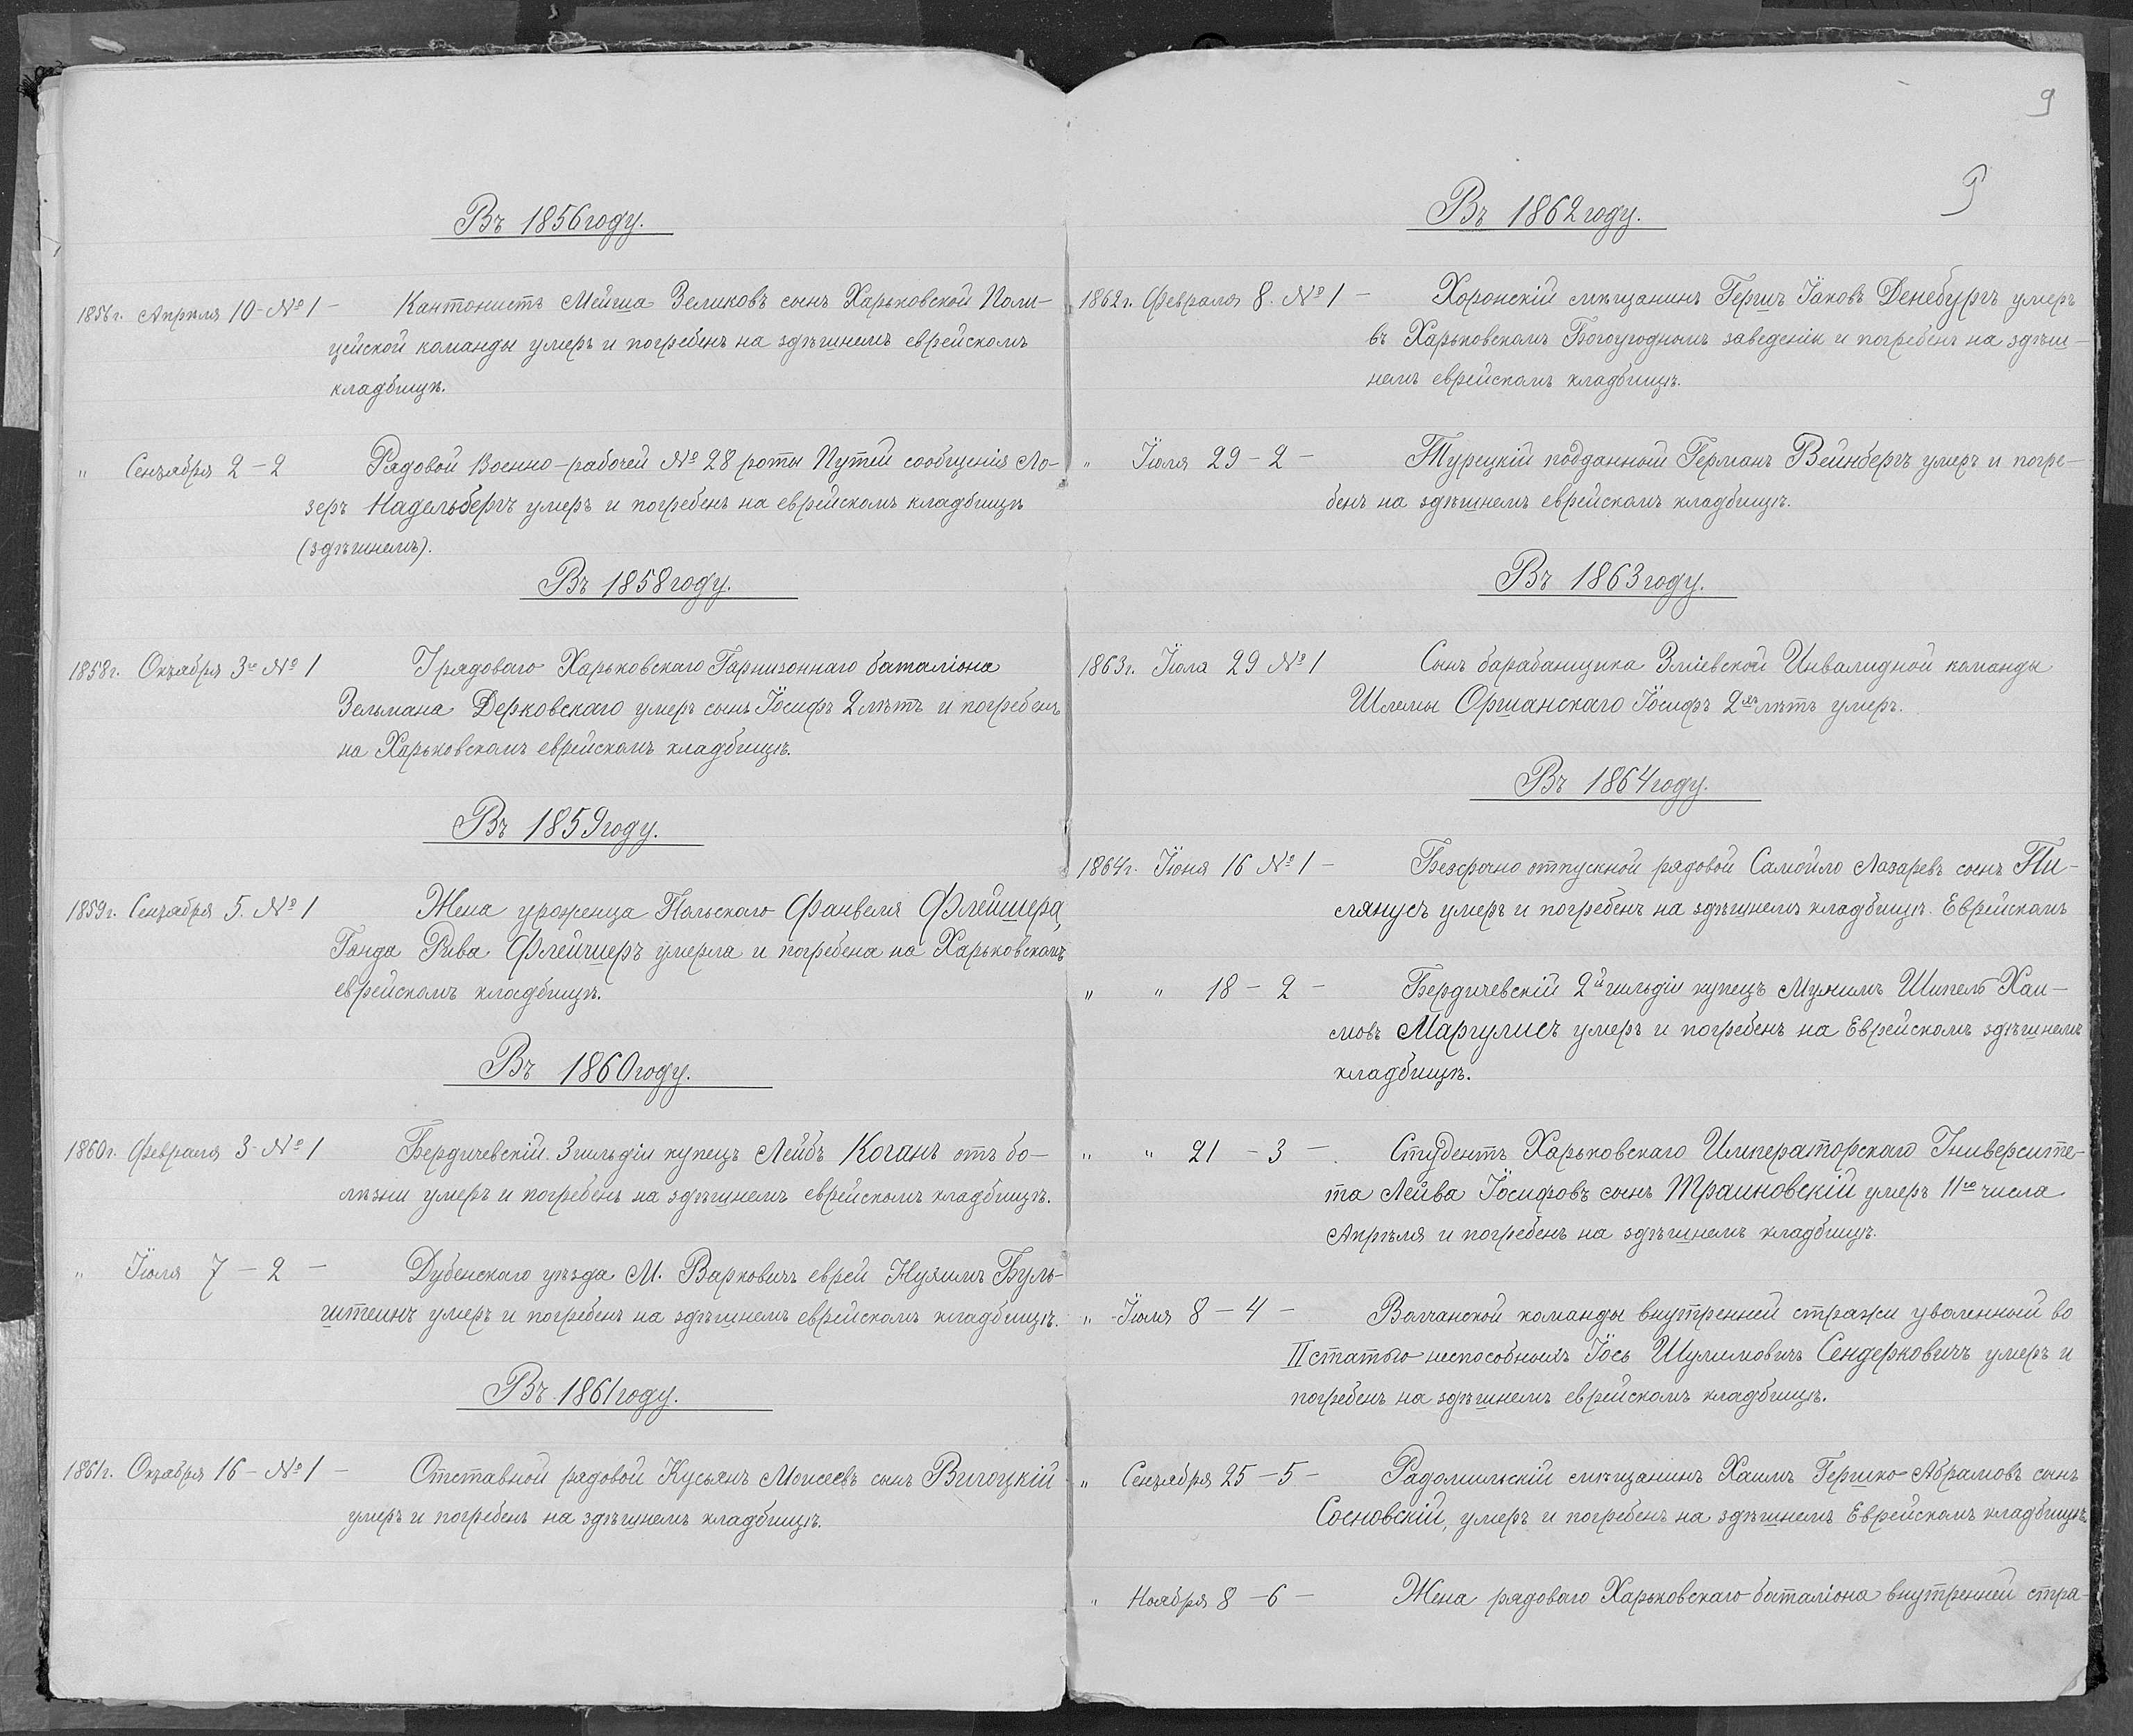 Въ 1856 году.
1856 г. Апрѣля 10 - № 1 - Кантонистъ Мейша Зеликовъ сынъ Харьковской Поли-
цейской команды умеръ и погребенъ на здѣшнемъ еврейскомъ
кладбищѣ.
" Сентября 2 - 2 Рядовой Военно-рабочей № 28 роты Путей сообщенія Ло-
зеръ Надельбергъ умеръ и погребенъ на еврейскомъ кладбищѣ
(здѣшнемъ).
Въ 1858 году.
1858 г. Октября 3го № 1 У рядоваго Харьковскаго Гарнизоннаго баталіона
Зельмана Дерковскаго умеръ сынъ Іосифъ 2 лѣтъ и погребенъ
на Харьковскомъ еврейскомъ кладбищѣ.
Въ 1859 году.
1859 г. Сентября 5. № 1 Жена уроженца Польскаго Фанвеля Флейшера,
Гонда Рива Флейшеръ умерла и погребена на Харьковскомъ
еврейскомъ кладбищѣ.
Въ 1860 году.
1860 г. Февраля 3 - № 1 Бердичевскій 3 гильдіи купецъ Лейбъ Коганъ отъ бо-
лѣзни умеръ и погребенъ на здѣшнемъ еврейскомъ кладбищѣ.
" Іюля 7 - 2 - Дубенскаго уѣзда М. Варковичъ еврей Нухимъ Буль-
штеинъ умеръ и погребенъ на здѣшнемъ еврейскомъ кладбищѣ.
Въ 1861 году.
1861 г. Октября 16 - № 1 - Отставной рядовой Кусьянъ Моисеевъ сынъ Вигоцкій
умеръ и погребенъ на здѣшнемъ кладбищѣ.
9
9
Въ 1862 году.
1862 г. Февраля 8. № 1 - Хоронскій мѣщанинъ Гершъ Іаковъ Денебургъ умеръ
въ Харьковскомъ Богоугодномъ заведеніи и погребенъ на здѣш-
немъ еврейскомъ кладбищѣ.
" Іюля 29 - 2 - Турецкій подданный Германъ Вейнбергъ умеръ и погре-
бенъ на здѣшнемъ еврейскомъ кладбищѣ.
Въ 1863 году.
1863 г. Іюля 29 № 1 Сынъ барабанщика Зміевской Инвалидной команды
Шлемы Оршанскаго Іосифъ 2хъ лѣтъ умеръ.
Въ 1864 году.
1864 г. Іюня 16 № 1 - Безсрочно отпускной рядовой Самойло Лазаревъ сынъ Пи-
слянусъ умеръ и погребенъ на здѣшнемъ кладбищѣ Еврейскомъ
" " 18 - 2 - Бердичевскій 2й гильдіи купецъ Мухимъ Шипель Хаи-
мовъ Маргулисъ умеръ и погребенъ на Еврейскомъ здѣшнемъ
кладбищѣ.
" " 21 - 3 - Студентъ Харьковскаго Императорскаго Университе-
та Лейва Іосифовъ сынъ Траиновскій умеръ 11го числа
Апрѣля и погребенъ на здѣшнемъ кладбищѣ.
" Іюля 8 - 4 - Волчанской команды внутренней стражи уволенный во
II статью неспособныхъ Іось Шулимовичъ Сендерковичъ умеръ и
погребенъ на здѣшнемъ еврейскомъ кладбищѣ.
" Сентября 25 - 5 - Радомильскій мѣщанинъ Хаимъ Гершко Абрамовъ сынъ
Сосновскій, умеръ и погребенъ на здѣшнемъ Еврейскомъ кладбищѣ.
" Ноября 8 - 6 - Жена рядоваго Харьковскаго баталіона внутренней стра-